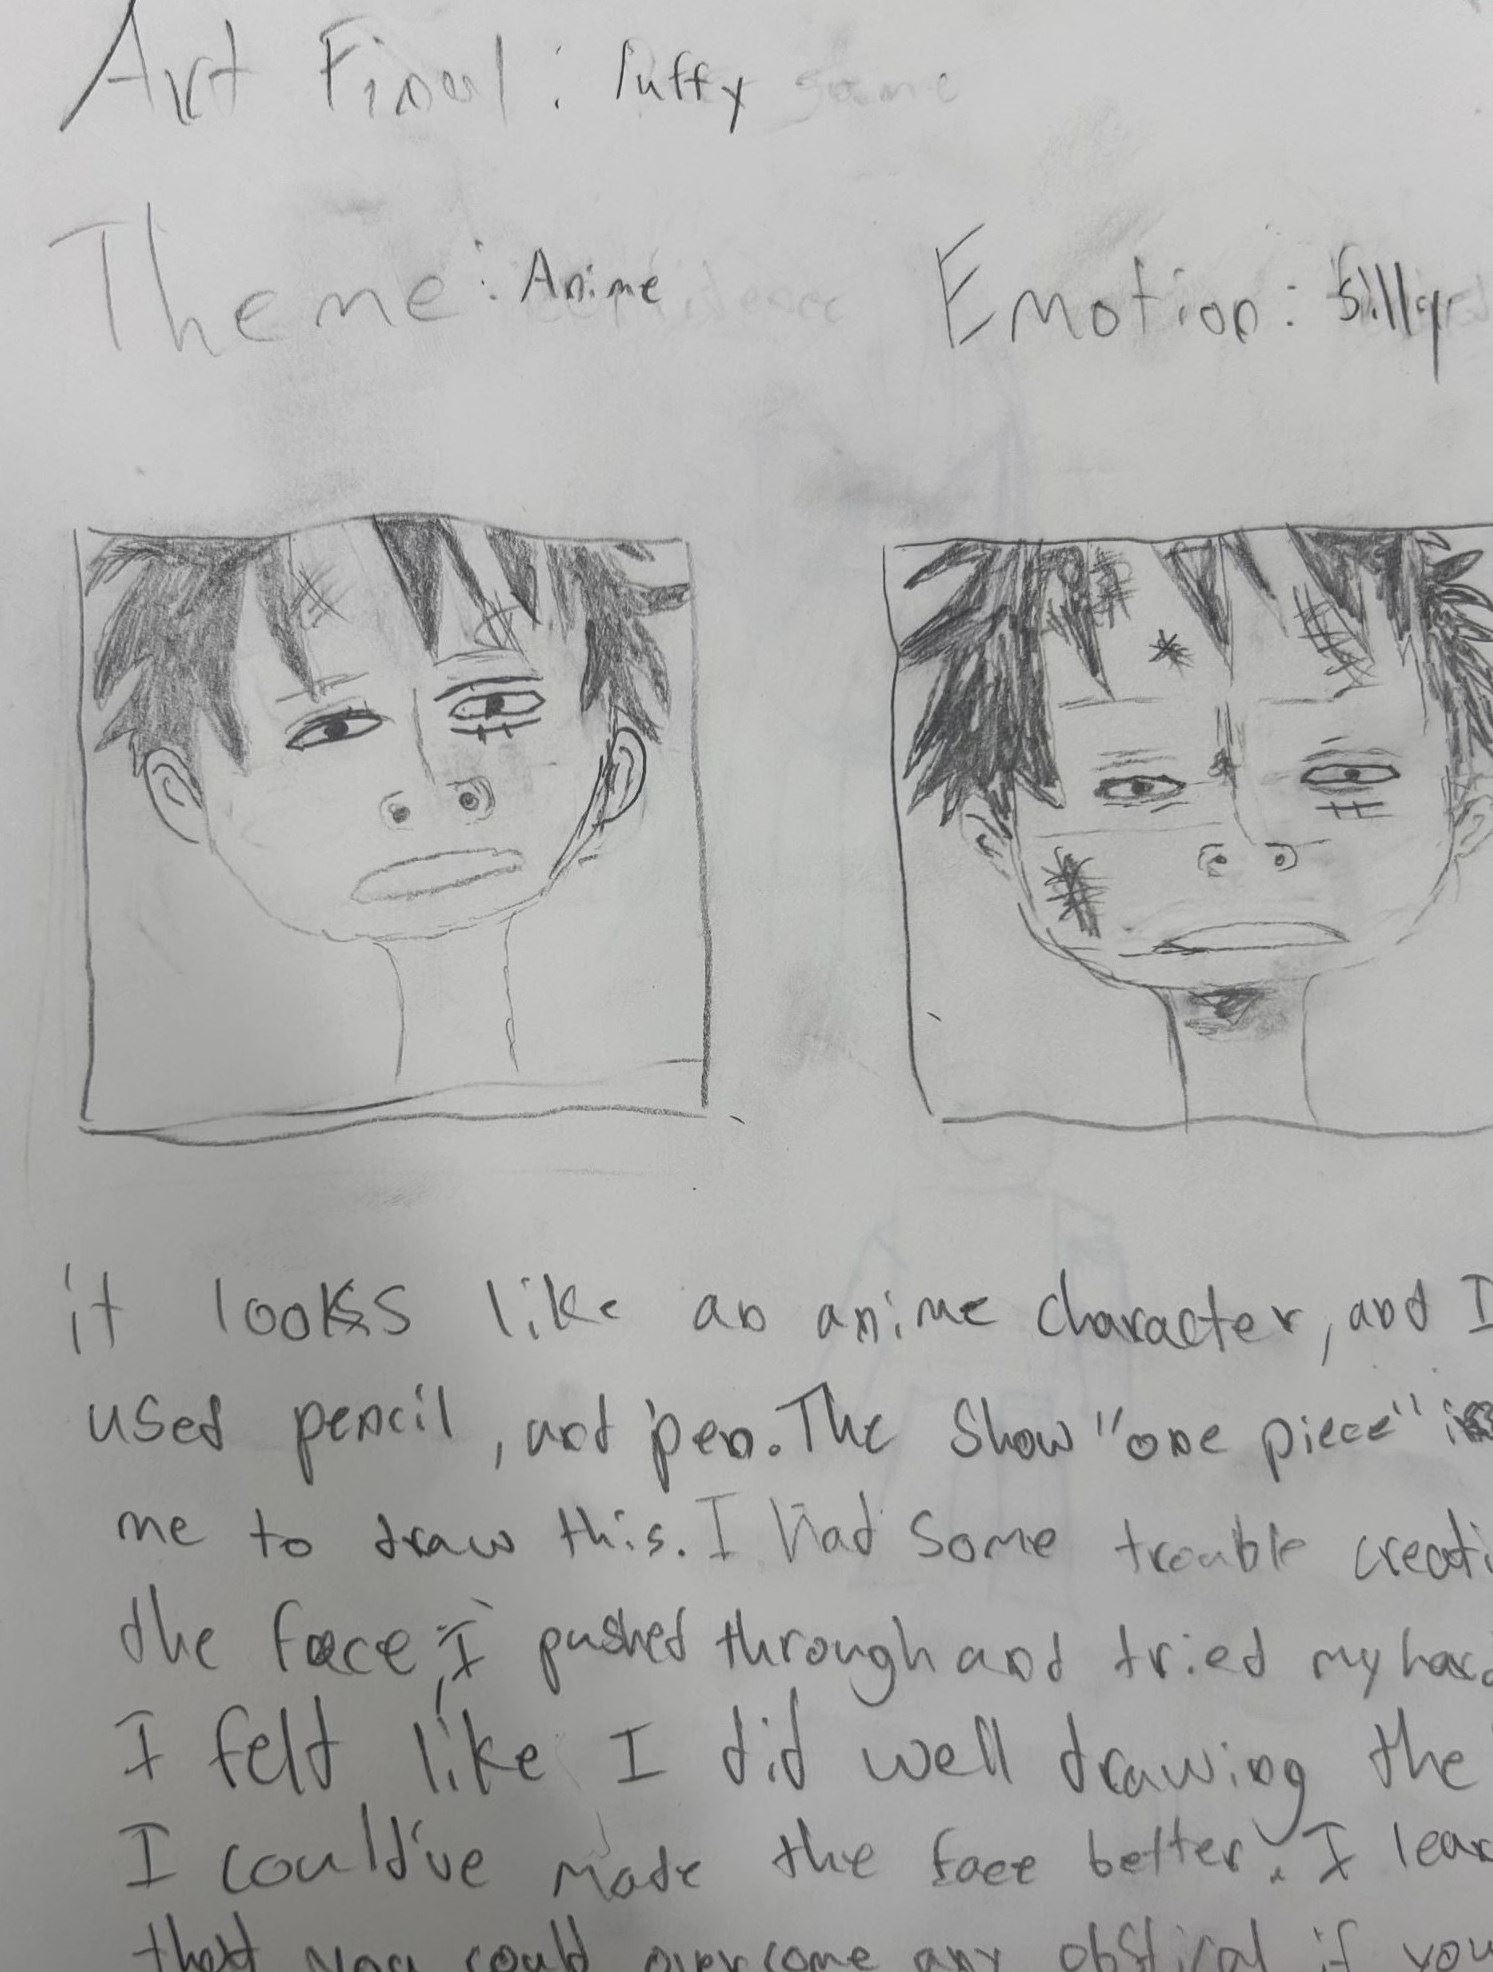 Art Final: luffy
Theme: Anime
Emotion: Silly
it looks like an anime character, and I
used pencil, not pen. The show "one piece"
me to draw this. I had some trouble creati
the face, I pushed through and tried my hard
I felt like I did well drawing the
I could've made the face better. I lear
that you could overcome any obstical if you